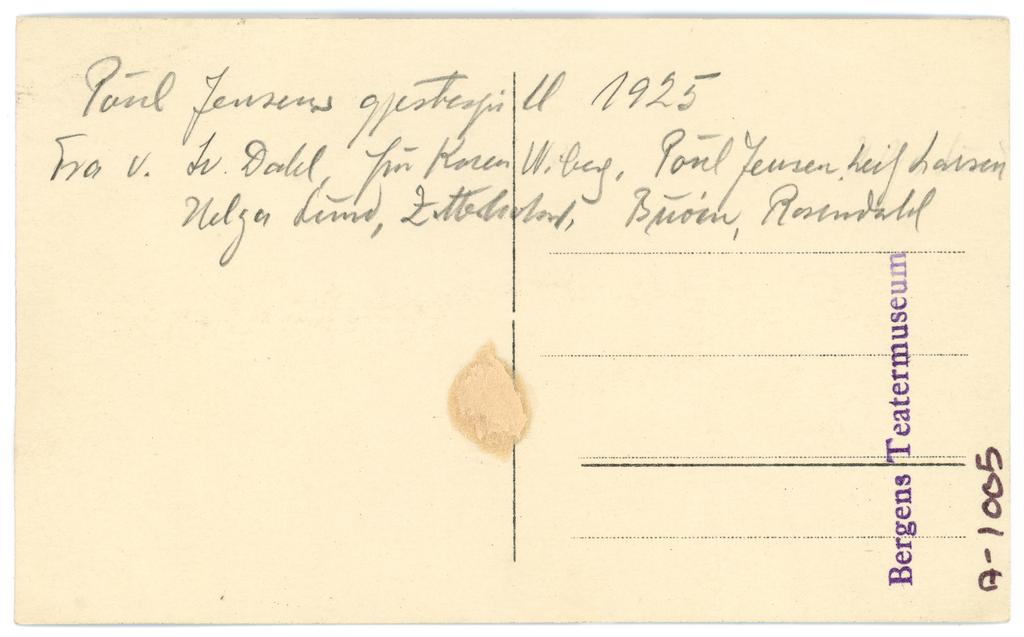 Poul Jensens gjestespill 1925
Fra v. Dahl, fru Karen Wiberg, Poul Jensen, Leif Larsen
Helga Lund, Rosendahl
Bergens Teatermuseum
A-1005